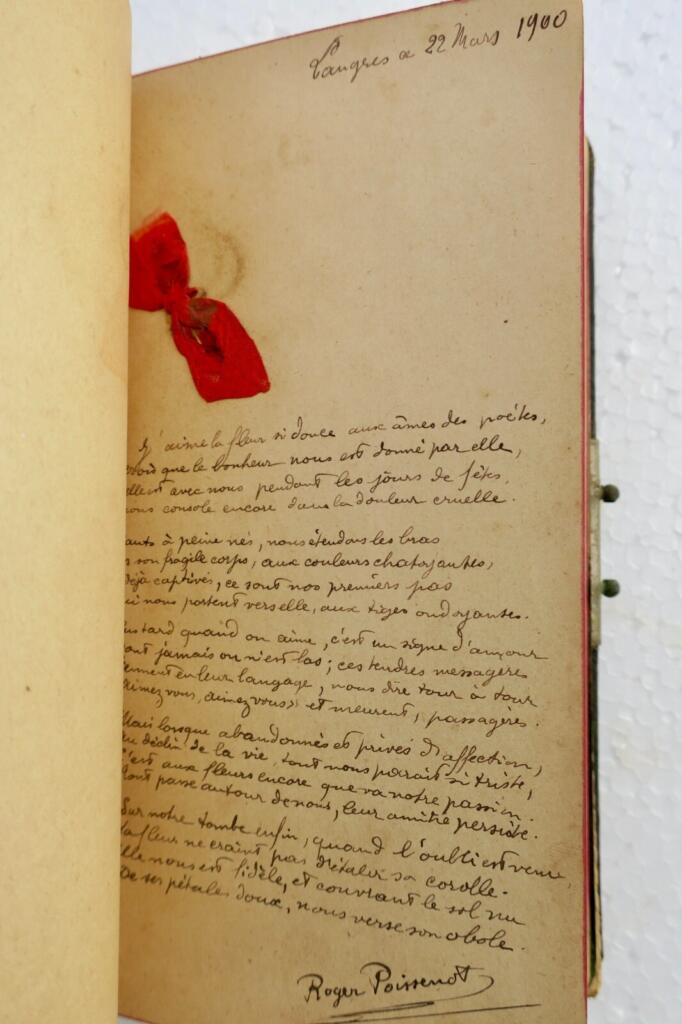 Langres le 22 Mars 1900
J'aime la fleur si douce aux âmes des poètes,
crois que le bonheur nous est donné par elle,
elle est avec nous pendant les jours de fêtes,
nous console encore dans la douleur cruelle.
ants à peine nés, nous étendons les bras
s son fragile corps, aux couleurs chatoyantes,
déjà captivés, ce sont nos premiers pas
ui nous portent vers elle, aux tiges ondoyantes.
us tard quand on aime, c'est un signe d'amour
ont jamais on n'est las ; ces tendres messagères
iennent en leur langage, nous dire tour à tour
aimez vous, aimez vous » et meurent, passagères.
Mais lorsque abandonnés et privés d'affection,
au déclin de la vie, tout nous paraît si triste,
c'est aux fleurs encore que va notre passion.
tout passe autour de nous, leur amitié persiste.
Sur notre tombe enfin, quand l'oubli est venu,
la fleur ne craint pas d'étaler sa corolle.
Elle nous est fidèle, et couvrant le sol nu
De ses pétales doux, nous verse son obole.
Roger Poissenot